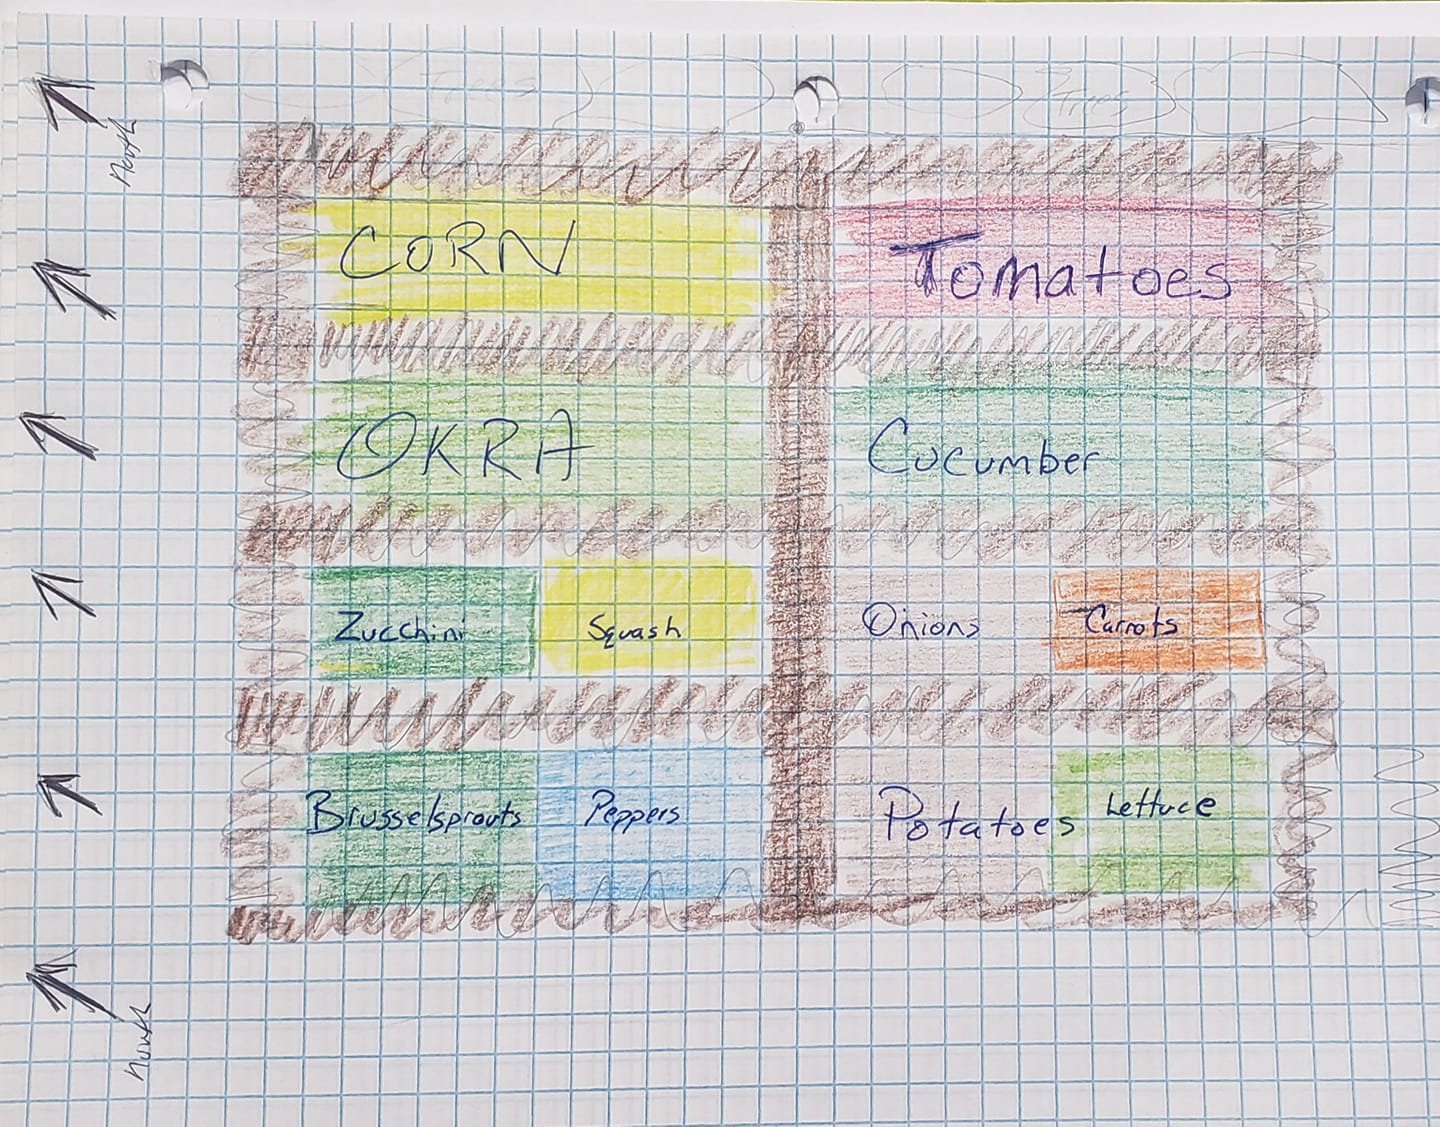 Trees Trees
North
CORN Tomatoes
OKRA Cucumber
Zucchini Squash Onions Carrots
Brusselsprouts Peppers Potatoes Lettuce
North